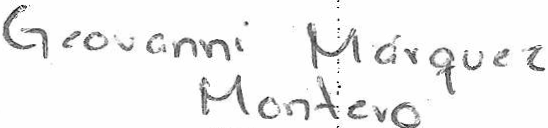 Geovanni Márquez
Montero